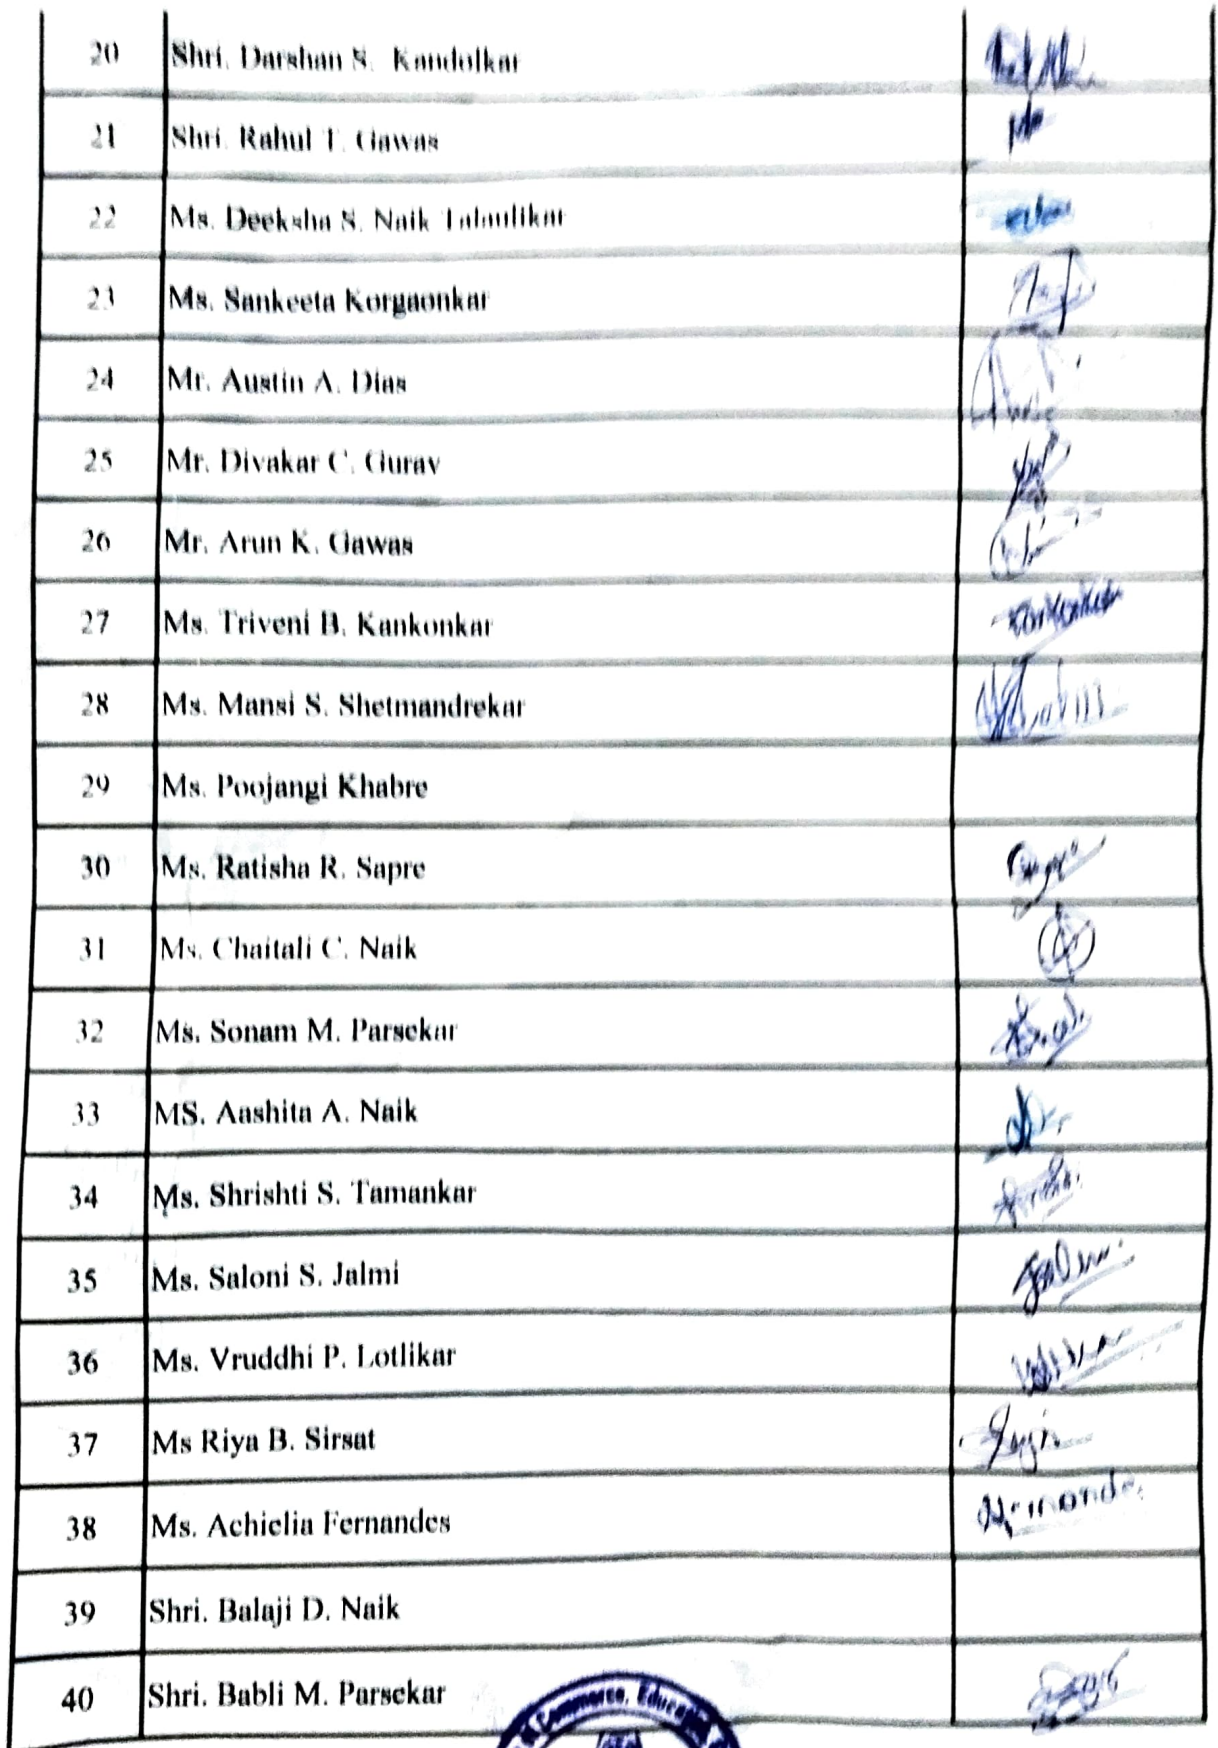 20 Shri. Darshan S. Kandolkar
21 Shri. Rahul T. Gawas
22 Ms. Deeksha S. Naik Talaulikar
23 Ms. Sankeeta Korgaonkar
24 Mr. Austin A. Dias
25 Mr. Divakar C. Gurav
26 Mr. Arun K. Gawas
27 Ms. Triveni B. Kankonkar Kankonkar
28 Ms. Mansi S. Shetmandrekar
29 Ms. Poojangi Khabre
30 Ms. Ratisha R. Sapre
31 Ms. Chaitali C. Naik
32 Ms. Sonam M. Parsekar
33 MS. Aashita A. Naik
34 Ms. Shrishti S. Tamankar
35 Ms. Saloni S. Jalmi
36 Ms. Vruddhi P. Lotlikar
37 Ms Riya B. Sirsat
38 Ms. Achielia Fernandes
39 Shri. Balaji D. Naik
40 Shri. Babli M. Parsekar
Commerce, Education